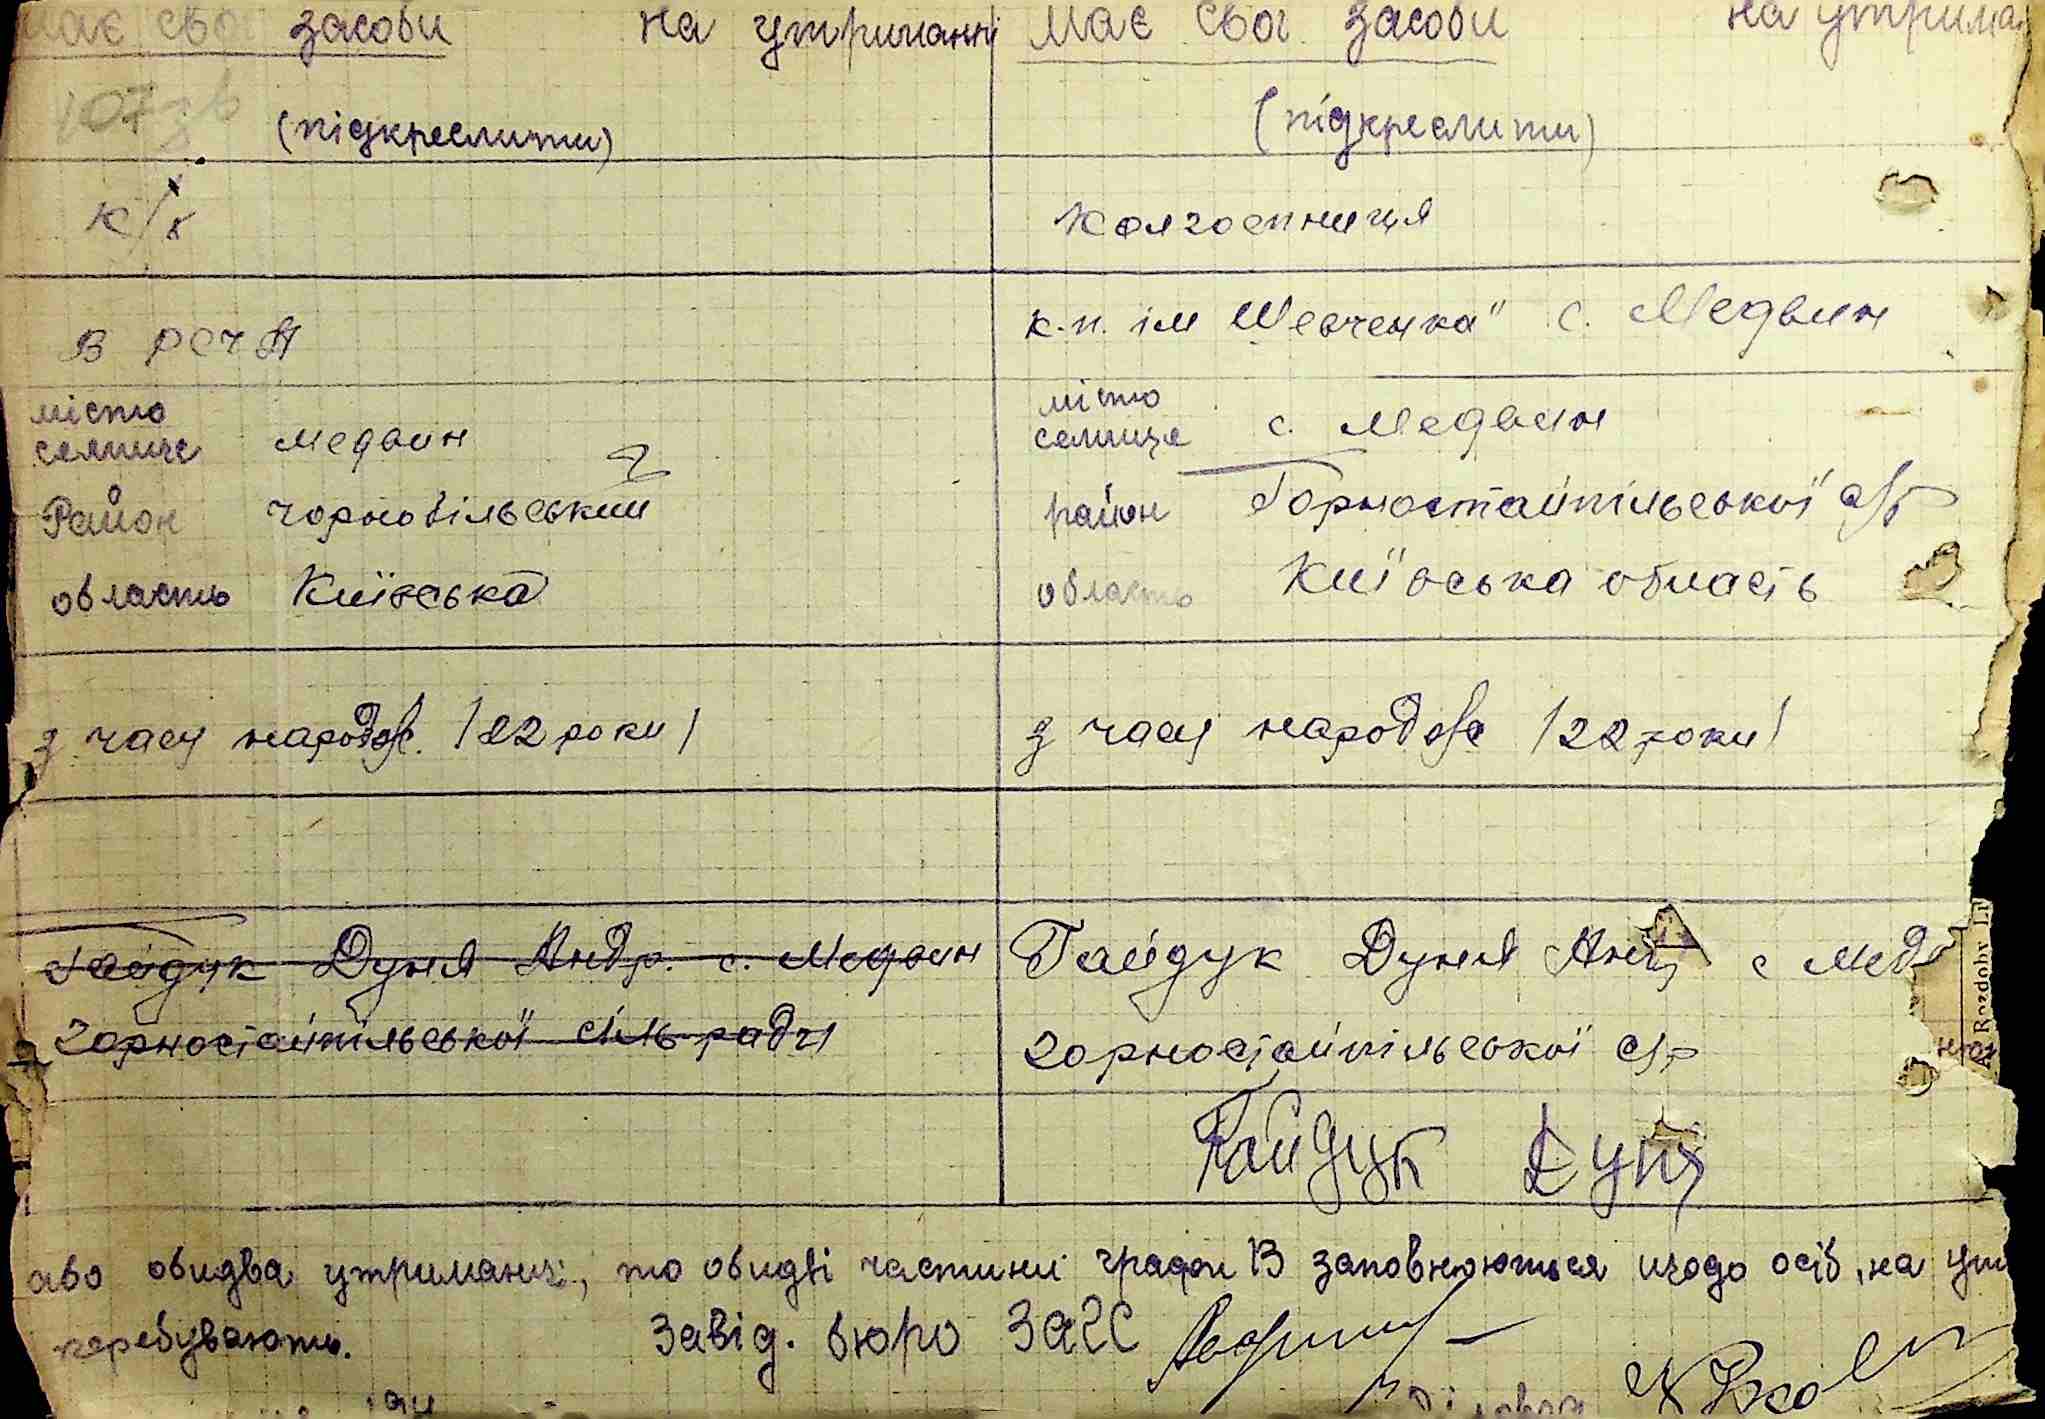 має свої засоби на утриманні має свої засоби на утрима
(підкреслити) (підкреслити)
к/г Колгоспниця
в РСЧА к.п. ім Шевченка" с. Медвин
місто місто
селище Медвин селище с. Медвин
Район Чорнобільський район Горностайпільської с/р
область Київська область Київська область
з часу народж. /22 роки/ з часу народж /22 роки/
Гайдук Дуня Андр. с. Медвин Гайдук Дуня Анд с Медв
Горностайпільської сільради Горностайпільської с/р
Гайдук Дуня
або обидва утриманці, то обидві частини графи В заповнюються щодо осіб, на ут
перебувають. Завід. бюро ЗАГС